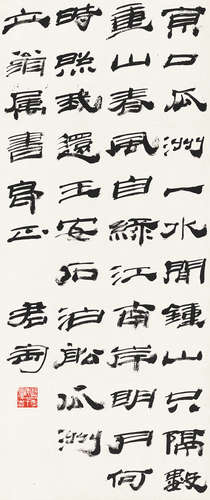 京口瓜洲一水間鍾山只隔數
重山春風自綠江南岸明月何
時照我還王安石泊船瓜洲
立翁属書即正 君匋